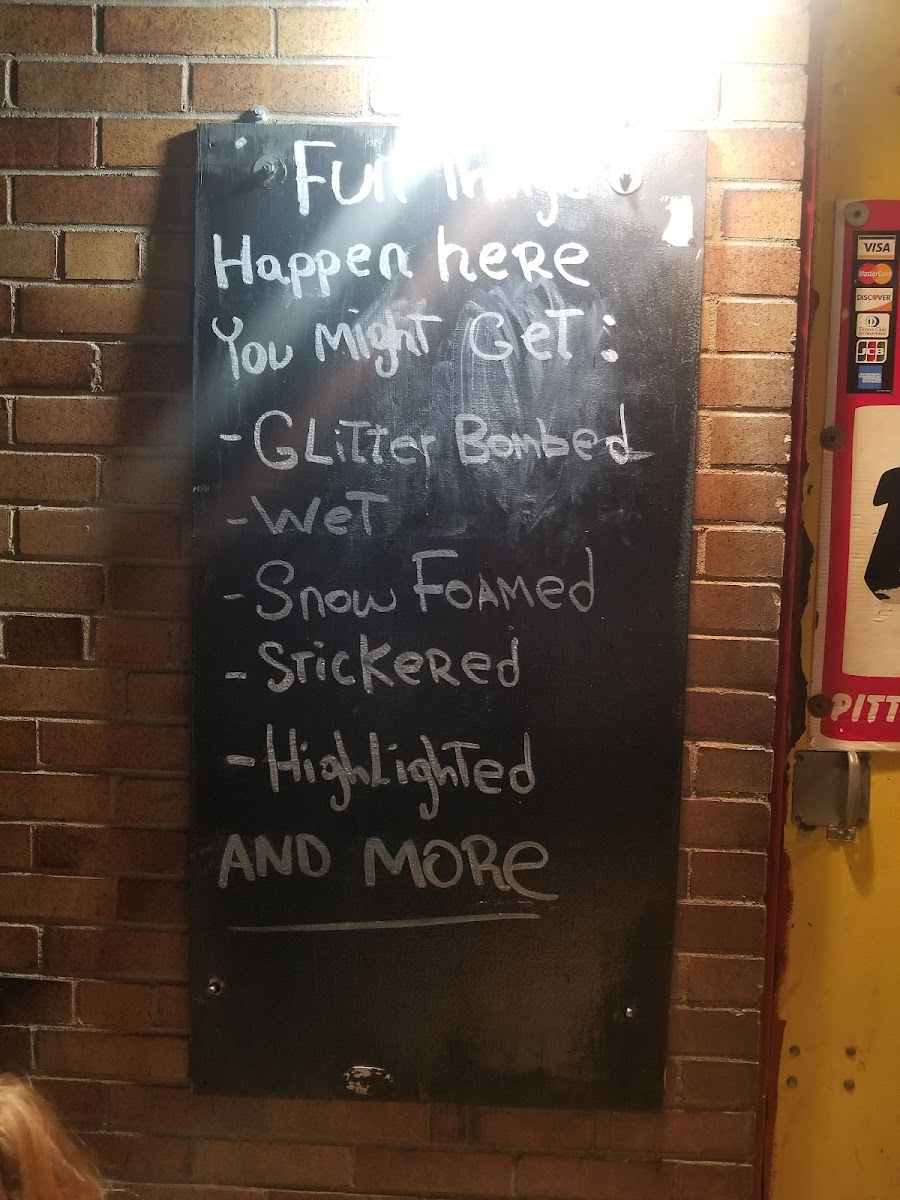 Fun Things
Happen here
You Might Get:
- Glitter Bombed
- Wet
- Snow Foamed
- Stickered
- Highlighted
AND MORe
VISA
MasterCard
DISCOVER
Diners Club
INTERNATIONAL
JCB
PITT